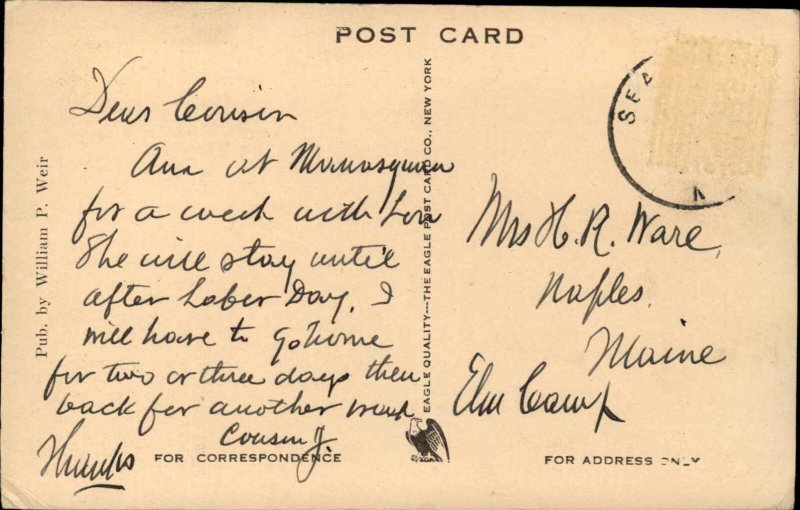 POST CARD
Dear Cousin
Am at Manasquan
for a week with Lou
She will stay until
after Labor Day. I
will have to go home
for two or three days then
back for another week
Cousin J.
Thanks
FOR CORRESPONDENCE
Pub. by William P. Weir
EAGLE QUALITY---THE EAGLE POST CARD CO., NEW YORK
SEA
Mrs H. R. Ware,
Naples,
Maine
Elm Camp
FOR ADDRESS ONLY